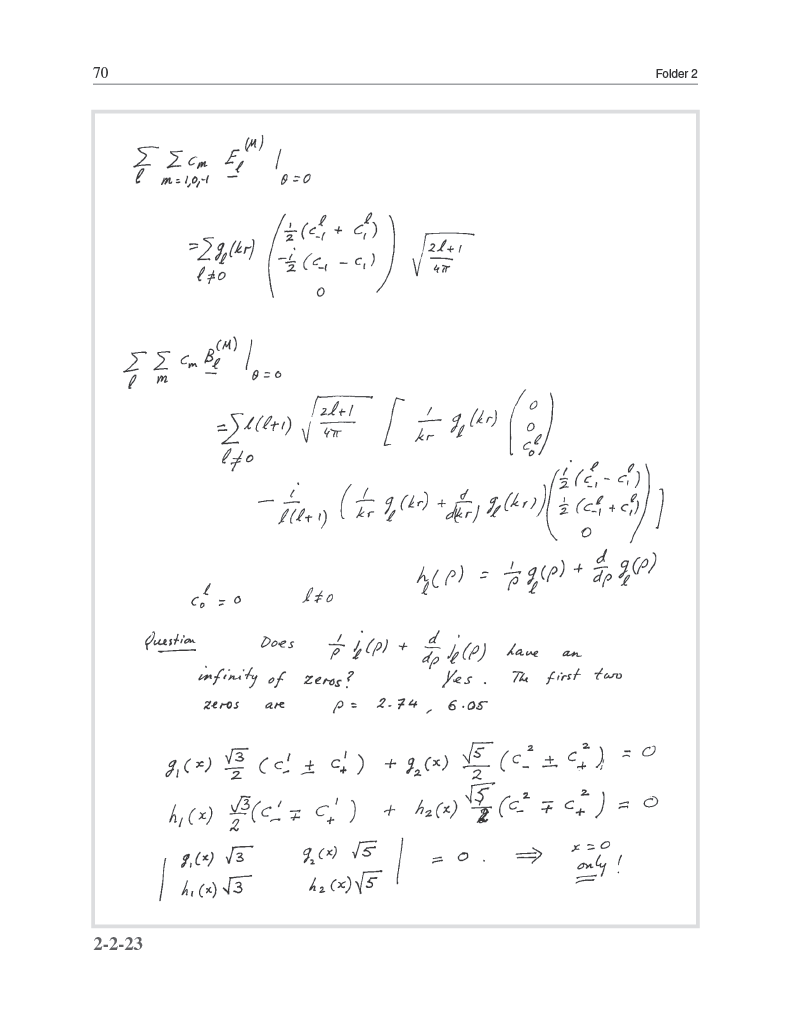 70 Folder 2
∑_l ∑_{m=1,0,-1} c_m E_l^{(M)} |_{θ=0}
= ∑_{l≠0} g_l(kr) ( ½(c_{-1}^l + c_1^l) ; -i/2 (c_{-1} - c_1) ; 0 ) √((2l+1)/4π)
∑_l ∑_m c_m B_l^{(M)} |_{θ=0}
= ∑_{l≠0} l(l+1) √((2l+1)/4π) [ 1/kr g_l(kr) ( 0 ; 0 ; c_0^l )
- i/(l(l+1)) ( 1/kr g_l(kr) + d/d(kr) g_l(kr) ) ( i/2 (c_{-1}^l - c_1^l) ; ½ (c_{-1}^l + c_1^l) ; 0 ) ]
h_l(ρ) = 1/ρ g_l(ρ) + d/dρ g_l(ρ)
c_0^l = 0 l≠0
Question Does 1/ρ j_l(ρ) + d/dρ j_l(ρ) have an
infinity of zeros? Yes. The first two
zeros are ρ = 2.74, 6.05
g_1(x) √3/2 (c_-^1 ± c_+^1) + g_2(x) √5/2 (c_-^2 ± c_+^2) = 0
h_1(x) √3/2 (c_-^1 ∓ c_+^1) + h_2(x) √5/2 (c_-^2 ∓ c_+^2) = 0
| g_1(x) √3 g_2(x) √5 ; h_1(x) √3 h_2(x) √5 | = 0. ⇒ x=0 only!
2-2-23